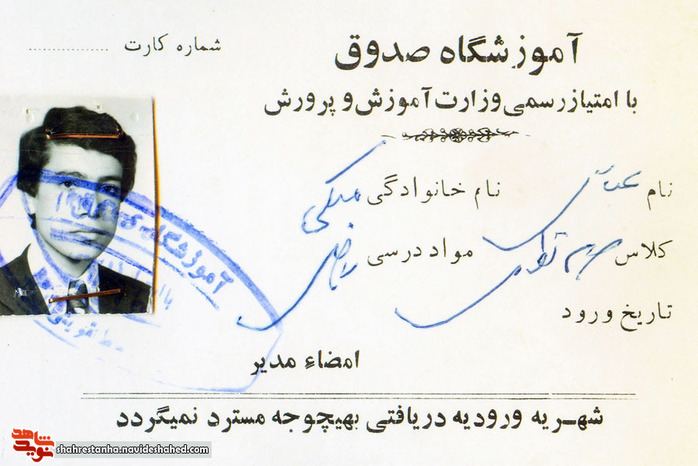 شماره کارت ..............
آموزشگاه صدوق
با امتیاز رسمی وزارت آموزش و پرورش
نام عباس نام خانوادگی ملکی
کلاس مواد درسی ریاضی
تاریخ ورود
امضاء مدیر
شهریه ورودیه دریافتی بهیچوجه مسترد نمیگردد
آموزشگاه
نوید شاهد
shahrestanha.navideshahed.com